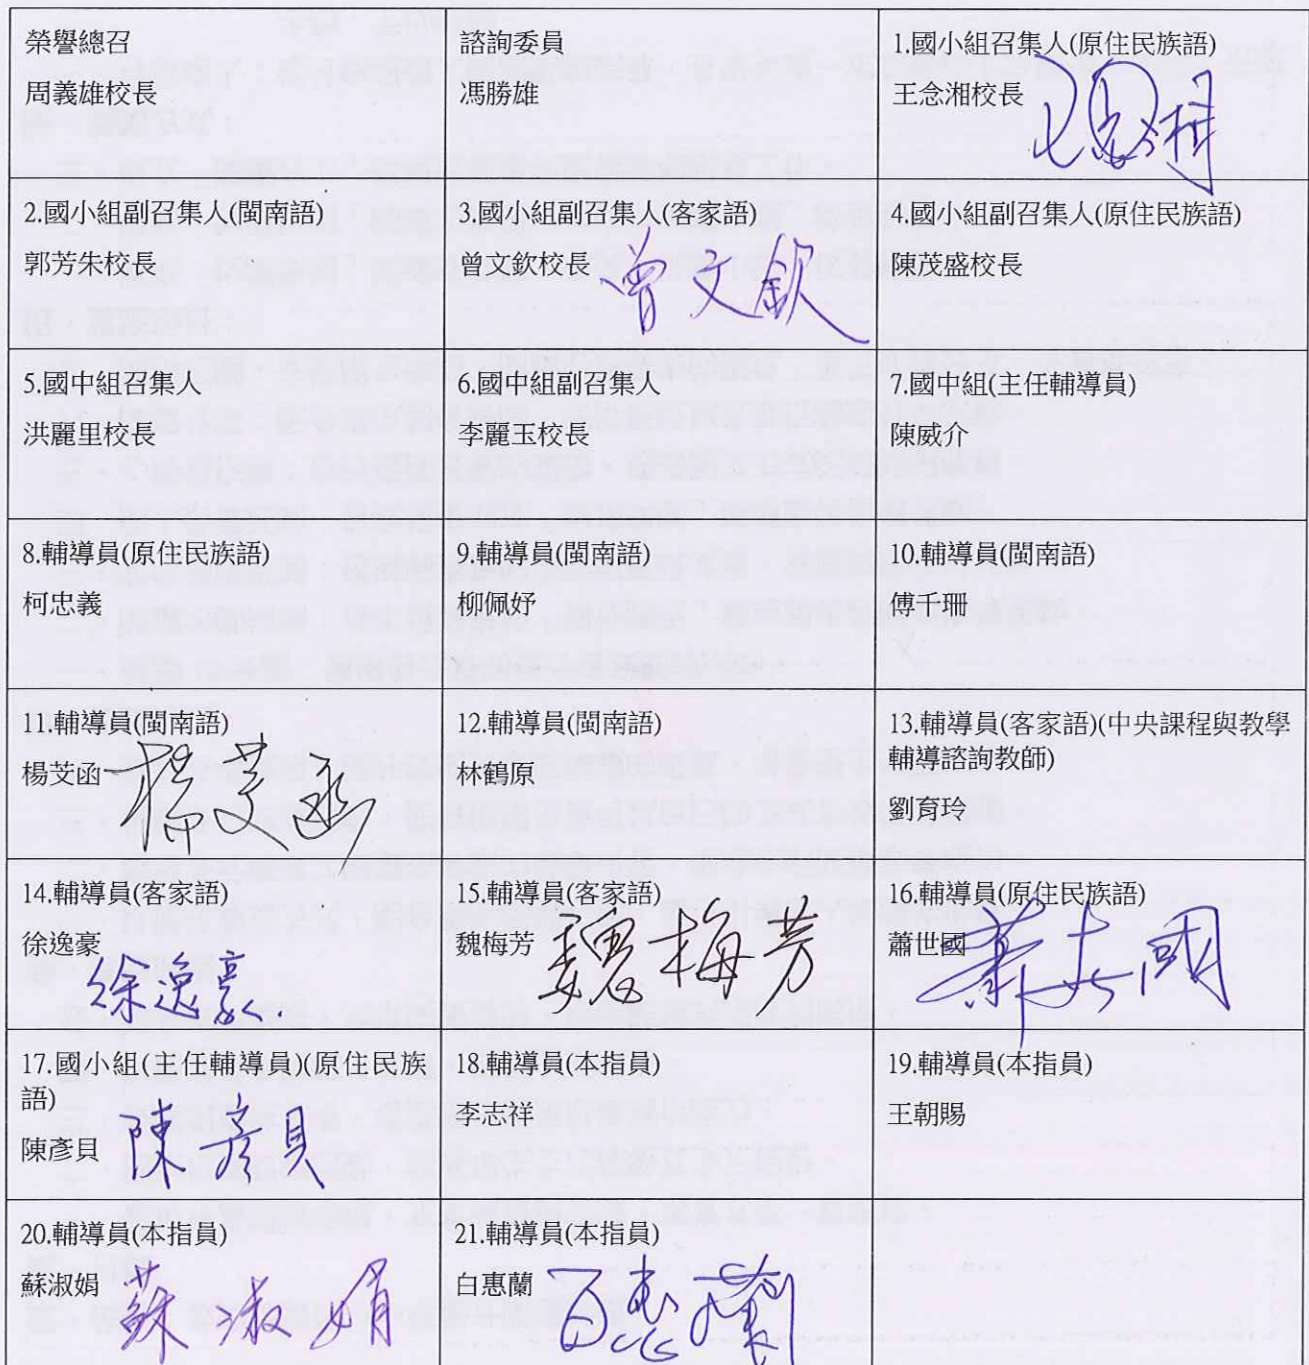 榮譽總召
周義雄校長
諮詢委員
馮勝雄
1.國小組召集人(原住民族語)
王念湘校長
王念湘
2.國小組副召集人(閩南語)
郭芳朱校長
3.國小組副召集人(客家語)
曾文欽校長
曾文欽
4.國小組副召集人(原住民族語)
陳茂盛校長
5.國中組召集人
洪麗里校長
6.國中組副召集人
李麗玉校長
7.國中組(主任輔導員)
陳威介
8.輔導員(原住民族語)
柯忠義
9.輔導員(閩南語)
柳佩妤
10.輔導員(閩南語)
傅千珊
11.輔導員(閩南語)
楊芠函
楊芠函
12.輔導員(閩南語)
林鶴原
13.輔導員(客家語)(中央課程與教學
輔導諮詢教師)
劉育玲
14.輔導員(客家語)
徐逸豪
徐逸豪
15.輔導員(客家語)
魏梅芳
魏梅芳
16.輔導員(原住民族語)
蕭世國
蕭世國
17.國小組(主任輔導員)(原住民族
語)
陳彥貝
陳彥貝
18.輔導員(本指員)
李志祥
19.輔導員(本指員)
王朝賜
20.輔導員(本指員)
蘇淑娟
蘇淑娟
21.輔導員(本指員)
白惠蘭
白惠蘭